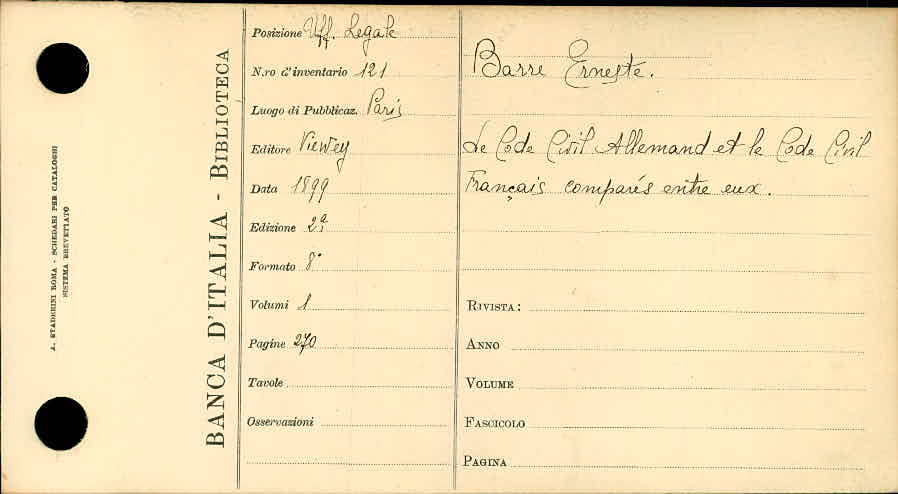 A. STADERINI ROMA - SCHEDARI PER CATALOGHI
SISTEMA BREVETTATO
BANCA D'ITALIA - BIBLIOTECA
Posizione Uff. Legale
N.ro d'inventario 121
Luogo di Pubblicaz. Paris
Editore Viewey
Data 1899
Edizione 2ª
Formato 8°
Volumi 1
Pagine 270
Tavole
Osservazioni
Barre Erneste.
Le Code Civil Allemand et le Code Civil
Français comparés entre eux.
RIVISTA:
ANNO
VOLUME
FASCICOLO
PAGINA